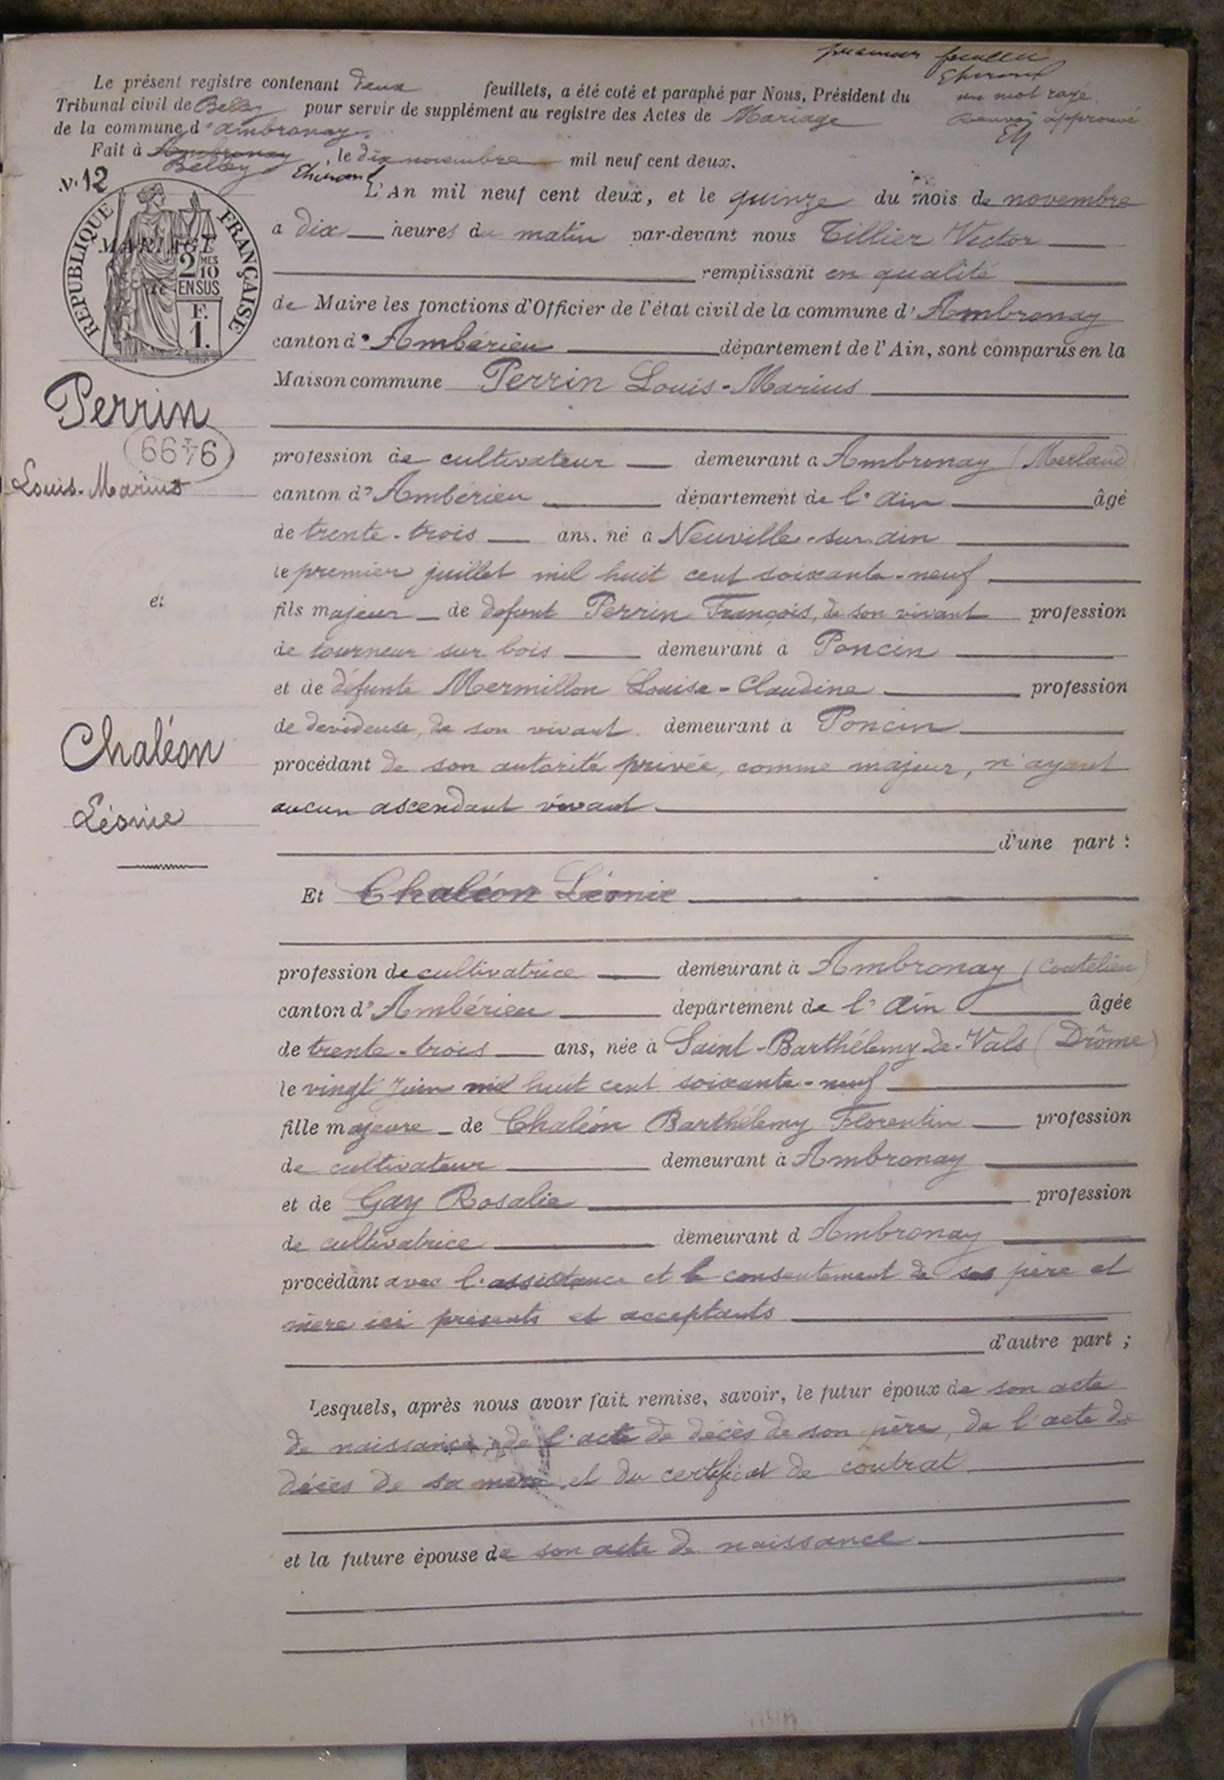 premier feuillet
Le présent registre contenant deux feuillets, a été coté et paraphé par Nous, Président du
un mot rayé
Tribunal civil de Belley pour servir de supplément au registre des Actes de Mariage
Renvoi approuvé
de la commune d'Ambronay.
Fait à Ambronay, le dix novembre mil neuf cent deux.
Belley
N° 12
L'An mil neuf cent deux, et le quinze du mois de novembre
RÉPUBLIQUE FRANÇAISE
MARIAGE
2 MES
10
EN SUS
F.
1.
à dix heures du matin par-devant nous Tillier Victor
remplissant en qualité
de Maire les fonctions d'Officier de l'état civil de la commune d'Ambronay
canton d'Ambérieu département de l'Ain, sont comparus en la
Maison commune Perrin Louis-Marius
Perrin
6646
Louis-Marius
profession de cultivateur demeurant à Ambronay (Merland)
canton d'Ambérieu département de l'Ain âgé
de trente-trois ans, né à Neuville-sur-ain
le premier juillet mil huit cent soixante-neuf
et
fils majeur de défunt Perrin François, de son vivant profession
de tourneur sur bois demeurant à Poncin
et de défunte Mermillon Louise-Claudine profession
de devideuse, de son vivant demeurant à Poncin
Chaléon
Léonie
procédant de son autorité privée, comme majeur, n'ayant
aucun ascendant vivant
d'une part :
Et Chaléon Léonie
profession de cultivatrice demeurant à Ambronay (Coutelieu)
canton d'Ambérieu département de l'Ain âgée
de trente-trois ans, née à Saint-Barthélemy-de-Vals (Drôme)
le vingt juin mil huit cent soixante-neuf
fille majeure de Chaléon Barthélemy Florentin profession
de cultivateur demeurant à Ambronay
et de Gay Rosalie profession
de cultivatrice demeurant à Ambronay
procédant avec l'assistance et le consentement de ses père et
mère ici présents et acceptants
d'autre part ;
Lesquels, après nous avoir fait remise, savoir, le futur époux de son acte
de naissance, de l'acte de décès de son père, de l'acte de
décès de sa mère, et du certificat de contrat
et la future épouse de son acte de naissance